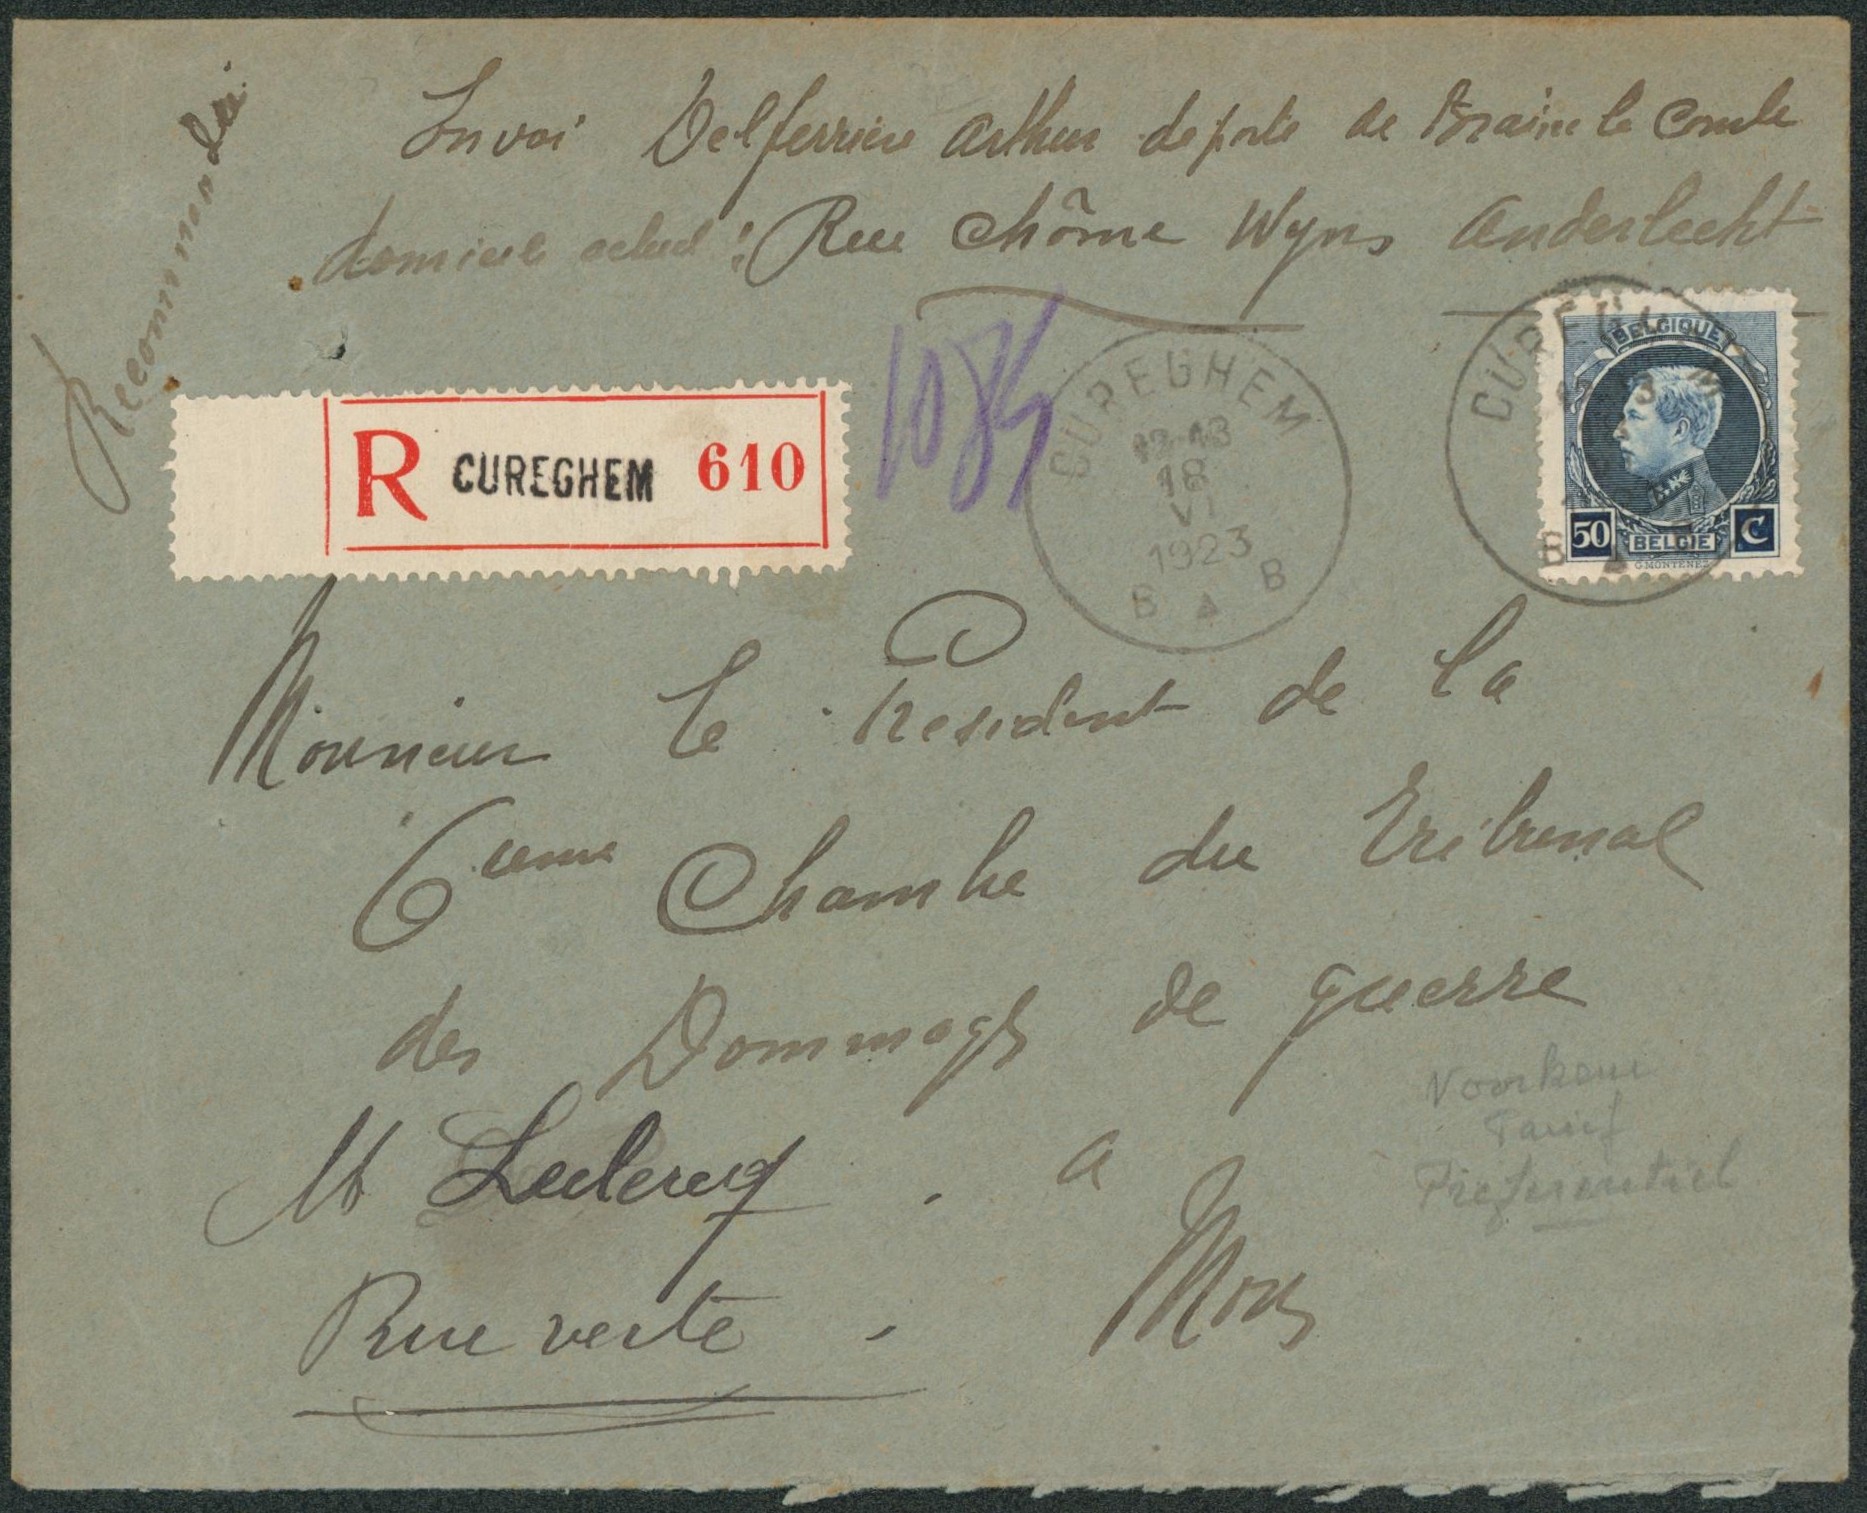 Recommandée
Envoi Delferriere Arthur déporté de Braine le Comte
domicile actuel : Rue Chôme Wyns Anderlecht
1085
R CUREGHEM 610
CUREGHEM
12-13
18
VI
1923
B B
CUREGHEM
B B
BELGIQUE
50 BELGIE C
G.MONTENEZ
Monsieur le President de la
6ieme Chambre du Tribunal
des Dommages de guerre
Mr Leclercq . a
Mons
Rue verte -
Voorkeur
Tarief
Preferentiel